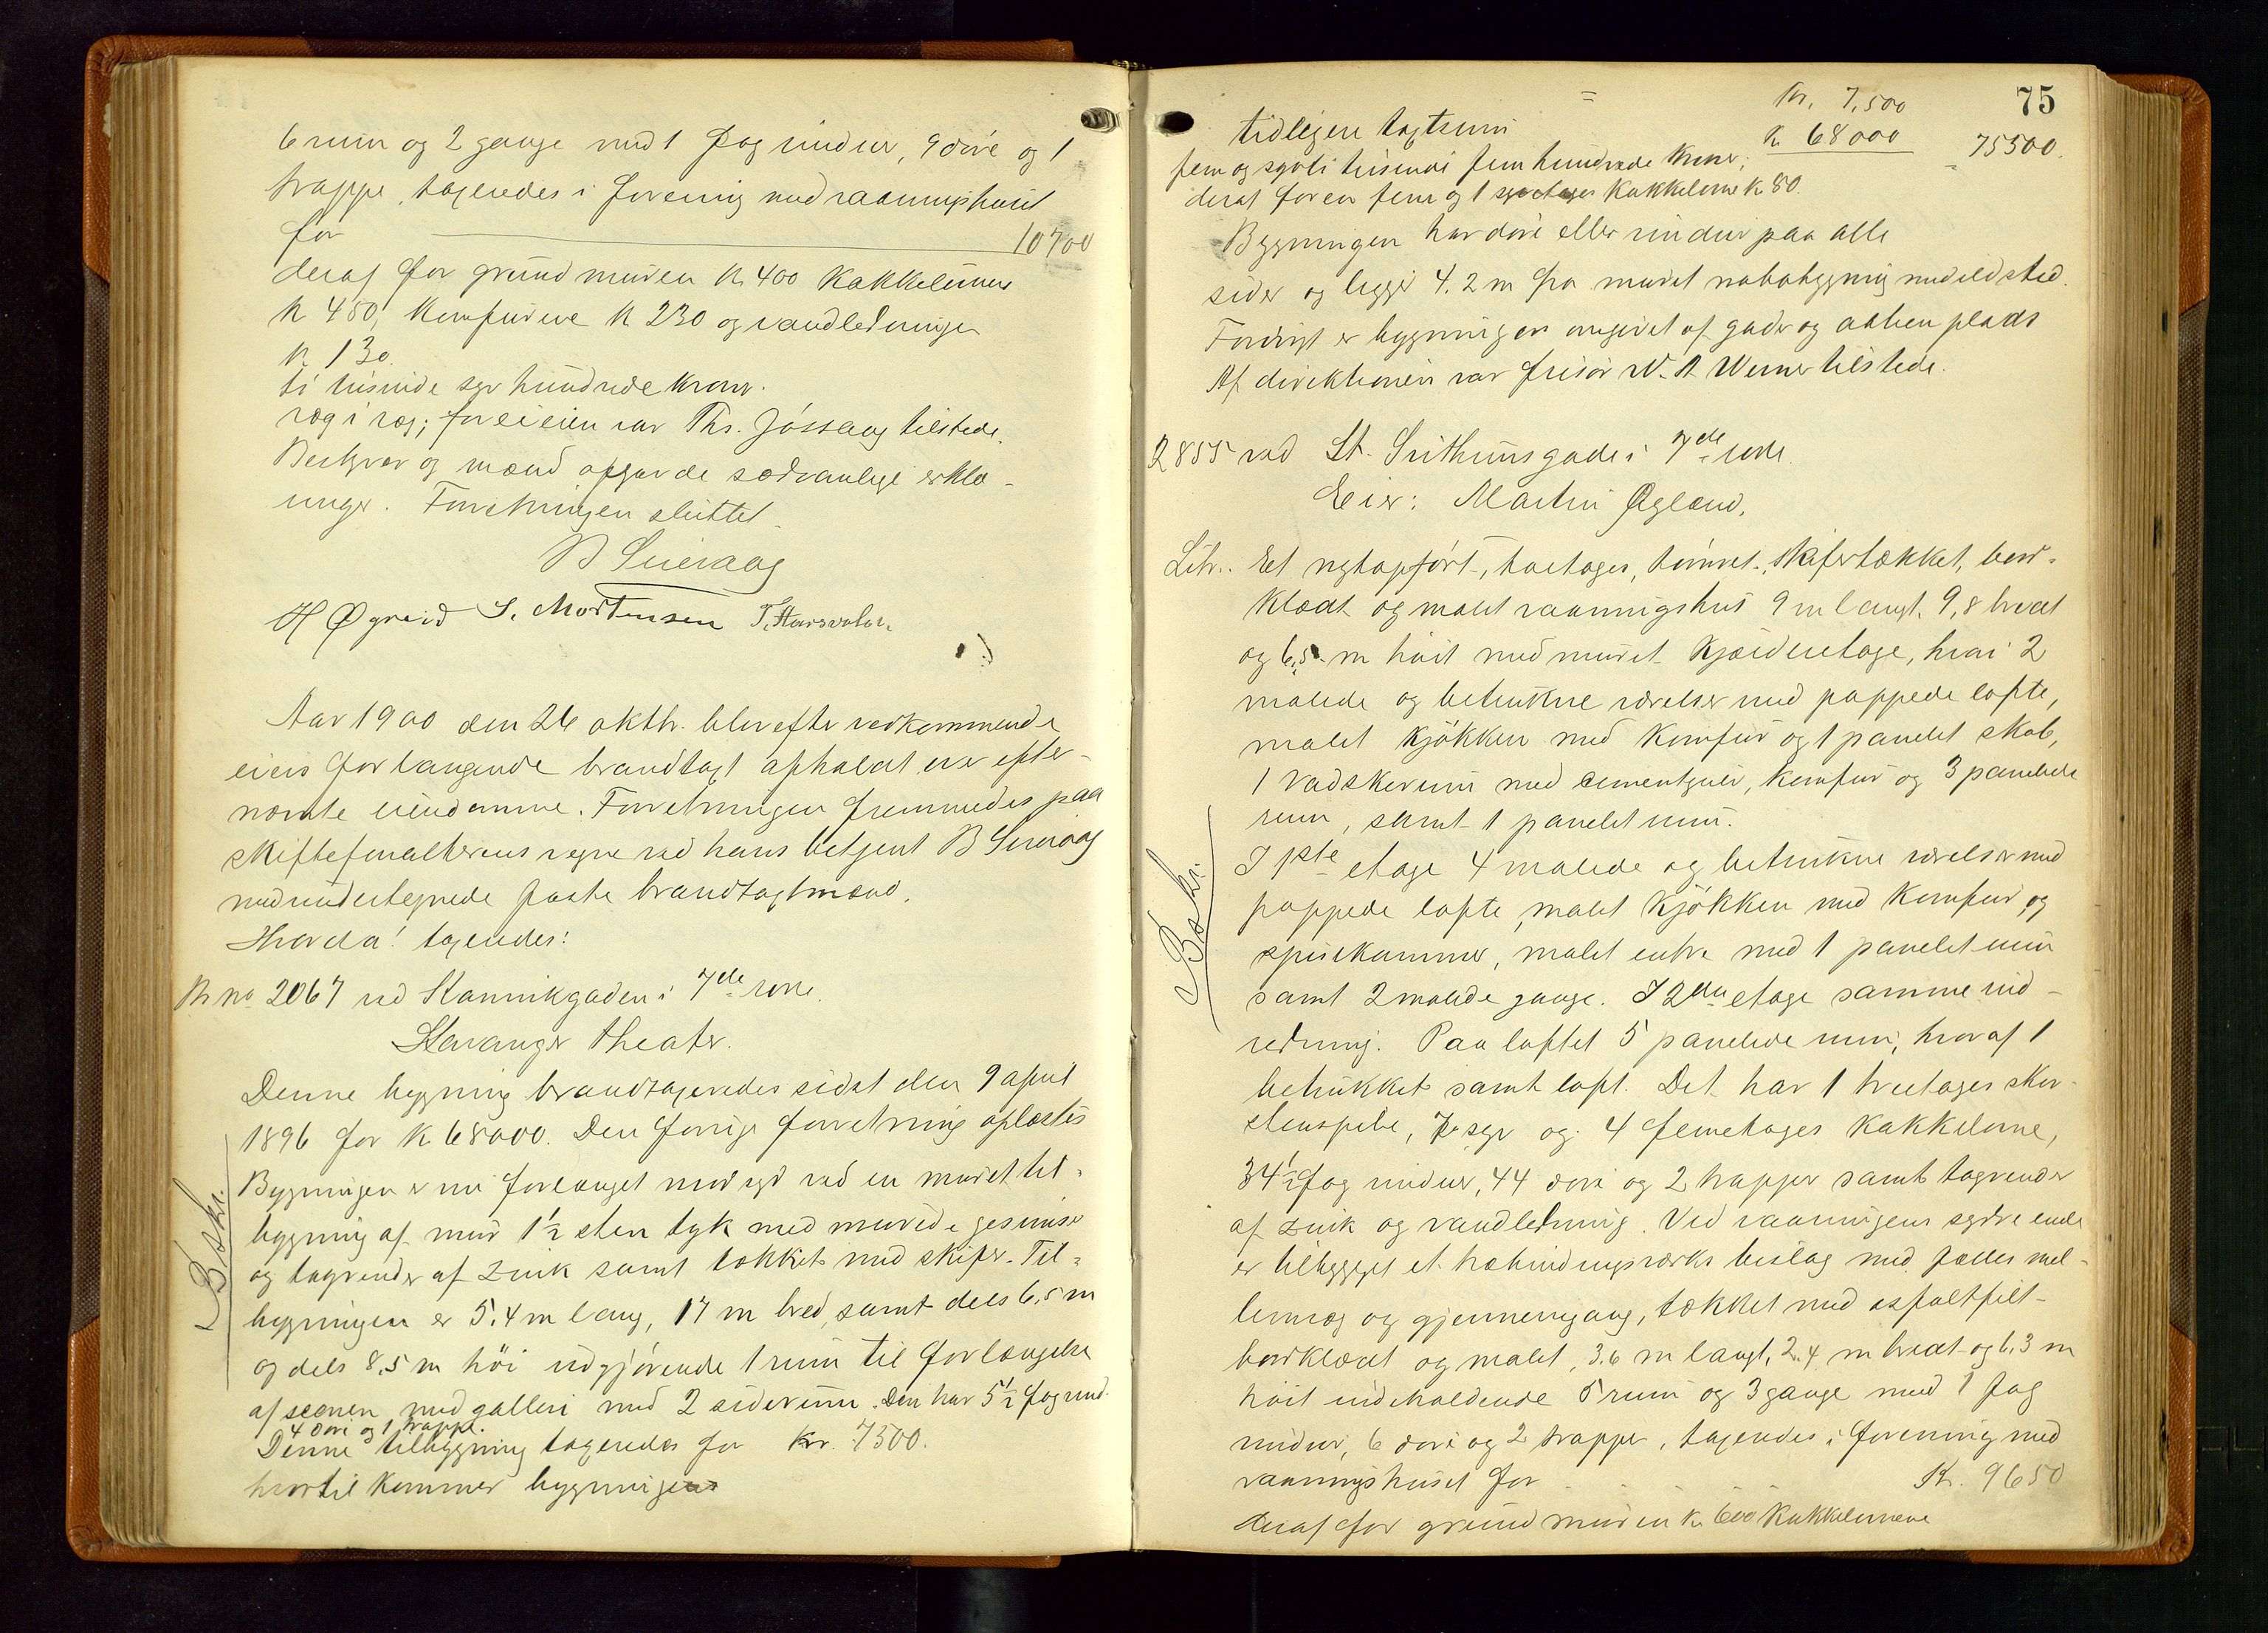 6 rum og 2 gange med 1 fag vinduer, 9 döre og 1
trappe, taxeredes i forening med vaaningshuset
for 10700
deraf for grundmuren kr 400 kakkelovnene
kr 450, komfurene kr 230 og vandledningen
kr 130.
ti tusinde syv hundrede kroner.
væg i væg; for eieren var Ths. Jössang tilstede.
Bestyrer og mænd afgav de sædvanlige erklæ-
ringer. Forretningen sluttet.
B Svieraag
H Øgreid S. Mortensen
Aar 1900 den 26 oktbr. blev efter vedkommende
eiers forlangende brandtaxt afholdt over efter-
nævnte eiendomme. Forretningen fremmedes paa
skifteforvalterens vegne ved hans betjent B Svieraag
med undertegnede faste brandtaxtmænd.
Hvorda! taxeredes:
M no 2067 ved Kannikgaden i 7de rode.
Stavanger theater.
Beskr.
Denne bygning brandtaxeredes sidst den 9 april
1896 for kr 68000. Den forrige forretning oplæstes
Bygningen er nu forlænget mod syd ved en muret til-
bygning af mur 1½ sten tyk med murede gesimser
og tagrender af zink samt tækket med skifer. Til-
bygningen er 5.4 m lang, 17 m bred, samt dels 6,5 m
og dels 8,5 m höi udgjörende 1 rum til forlængelse
af scenen med galleri med 2 siderum. Den har 5½ fag vind.
4 döre og 1 trappe.
Denne tilbygning taxeredes for kr. 7500.
hvortil kommer bygningens
75
kr. 7,500
tidligere taxtsum kr 68000 75500.
fem og sytti tusinde fem hundrede kroner,
deraf for en fem og 1 syvetages kakkelovne kr 80.
Bygningen har döre eller vinduer paa alle
sider og ligger 4.2 m fra muret nabobygning med ildsted.
Forövrigt er bygningen omgivet af gader og aaben plads
Af direktionen var frisör W. A. Werner tilstede.
2855 ved St. Svithunsgade i 7de rode.
Eier: Martin Øglænd.
Litr. Et nyt opfört, toetages, tömret, skifertækket, bord-
klædt og malet vaaningshus 9 m langt, 9,8 bredt
og 6,5 m höit med muret kjælderetage, hvori 2
malede og betrukne værelser med pappede lofte,
malet kjökken med komfur og 1 panelet skab,
1 vadskerum med cementgulv, komfur og 3 panelede
rum, samt 1 panelet rum.
Beskr.
I 1ste etage 4 malede og betrukne værelser med
pappede lofte, malet kjökken med komfur, og
spisekammer, malet entre med 1 panelet rum
samt 2 malede gange. I 2den etage samme ind-
redning. Paa loftet 5 panelede rum, hvoraf 1
betrukket samt loft. Det har 1 treetages skor-
stenspibe, 7 syv og 4 femetages kakkelovne,
34½ fag vinduer, 44 döre og 2 trapper samt tagrender
af zink og vandledning. Ved vaaningens syndre ende
er tilbygget et træbindingsværks bislag med fælles mel-
lemvæg og gjennemgang, tækket med asfaltfilt-
bordklædt og malet, 3.6 m langt, 2.4 m bredt og 6.3 m
höit indeholdende 5 rum og 3 gange med 1 fag
vinduer, 6 döre og 2 trapper, taxeredes i forening med
vaaningshuset for Kr. 9650
deraf for grundmuren kr 600 kakkelovnene